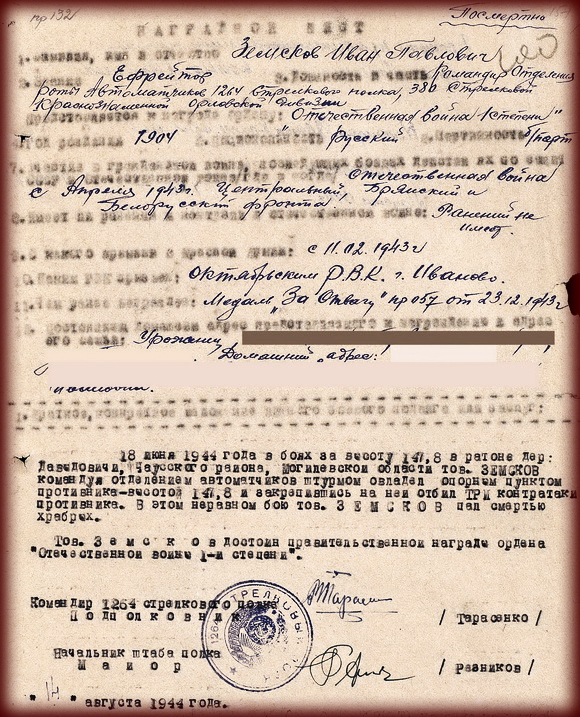 пр 132
Посмертно
НАГРАДНОЙ ЛИСТ
1. Фамилия, имя и отчество Земсков Иван Павлович
2. Звание Ефрейтор 3. Должность и часть Командир Отделения
роты Автоматчиков 1264 стрелкового полка, 380 Стрелковой
Краснознаменной Орловской дивизии
Представляется к Отечественная Война 1 степени"
4. Год рождения 1904 5. Национальность Русский 6. Партийность б/парт
7. Участие в гражданской войне,
Отечественная Война
с Апреля 1943г. Центральный, Брянский и
Белорусский фронта
8. Имеет ли ранения и контузии в отечественной войне: Ранений не
имеет.
9. С какого времени в Красной Армии: с 11.02.1943г
10. Каким РВК призван: Октябрьским Р.В.К. г. Иваново.
11. Чем ранее награжден: Медаль "За Отвагу" пр 057 от 23.12.1943г
12. Постоянный домашний адрес представляемого к награждению и адрес
его семьи: Урожанец
Домашний адрес:
1. Краткое, конкретное изложение личного боевого подвига или заслуг:
18 июня 1944 года в боях за высоту 147,8 в районе дер:
Давыдовичи, Чаусского района, Могилевской области тов. ЗЕМСКОВ
командуя отделением автоматчиков штурмом овладел опорнем пунктом
противника-высотой 147,8 и закрепившись на ней отбил ТРИ контратаки
противника. В этом неравном бою тов. З Е М С К О В пал смертью
храбрех.
Тов. З е м с к о в достоин правительственной награде ордена
"Отечественной войне 1-й степени".
Командир 1264 стрелкового полка
П о д п о л к о в н и к / Тарасенко /
1264 СТРЕЛКОВЫЙ ПОЛК
Начальник штаба полка
М а й о р / Разников /
" " августа 1944 года.